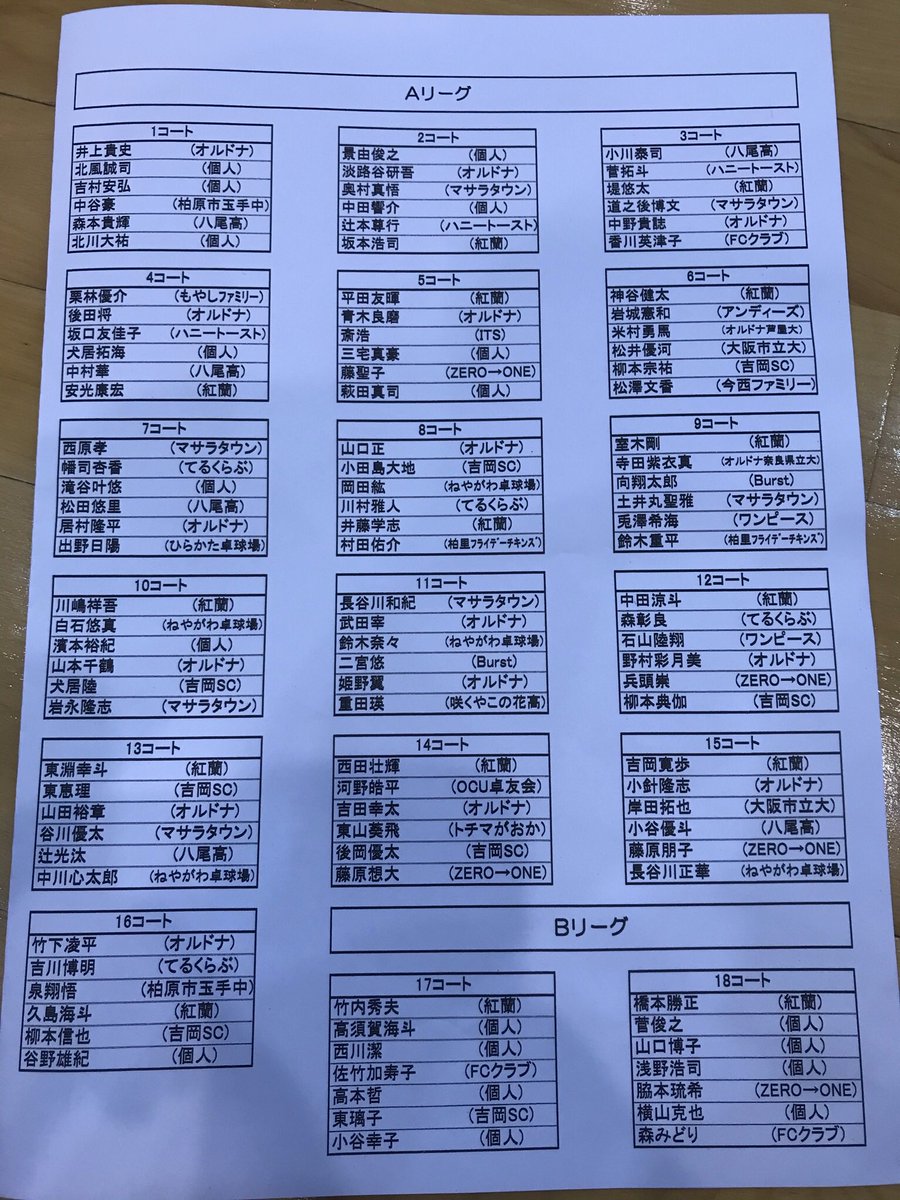 Aリーグ
1コート
井上貴史 (オルドナ)
北風誠司 (個人)
吉村安弘 (個人)
中谷豪 (柏原市玉手中)
森本貴輝 (八尾高)
北川大祐 (個人)
2コート
景由俊之 (個人)
淡路谷研吾 (オルドナ)
奥村真悟 (マサラタウン)
中田響介 (個人)
辻本尊行 (ハニートースト)
坂本浩司 (紅蘭)
3コート
小川泰司 (八尾高)
菅拓斗 (ハニートースト)
堤悠太 (紅蘭)
道之後博文 (マサラタウン)
中野貴誌 (オルドナ)
香川英津子 (FCクラブ)
4コート
栗林優介 (もやしファミリー)
後田将 (オルドナ)
坂口友佳子 (ハニートースト)
犬居拓海 (個人)
中村華 (八尾高)
安光康宏 (紅蘭)
5コート
平田友暉 (紅蘭)
青木良磨 (オルドナ)
斎浩 (ITS)
三宅真豪 (個人)
藤聖子 (ZERO→ONE)
萩田真司 (個人)
6コート
神谷健太 (紅蘭)
岩城憲和 (アンディーズ)
米村勇馬 (オルドナ芦屋大)
松井優河 (大阪市立大)
柳本宗祐 (吉岡SC)
松澤文香 (今西ファミリー)
7コート
西原孝 (マサラタウン)
幡司杏香 (てるくらぶ)
滝谷叶悠 (個人)
松田悠里 (八尾高)
居村隆平 (オルドナ)
出野日陽 (ひらかた卓球場)
8コート
山口正 (オルドナ)
小田島大地 (吉岡SC)
岡田紘 (ねやがわ卓球場)
川村雅人 (てるくらぶ)
井藤学志 (紅蘭)
村田佑介 (柏里フライデーチキンズ)
9コート
室木剛 (紅蘭)
寺田紫衣真 (オルドナ奈良県立大)
向翔太郎 (Burst)
土井丸聖雅 (マサラタウン)
兎澤希海 (ワンピース)
鈴木重平 (柏里フライデーチキンズ)
10コート
川嶋祥吾 (紅蘭)
白石悠真 (ねやがわ卓球場)
濱本裕紀 (個人)
山本千鶴 (オルドナ)
犬居陸 (吉岡SC)
岩永隆志 (マサラタウン)
11コート
長谷川和紀 (マサラタウン)
武田宰 (オルドナ)
鈴木奈々 (ねやがわ卓球場)
二宮悠 (Burst)
姫野翼 (オルドナ)
重田瑛 (咲くやこの花高)
12コート
中田涼斗 (紅蘭)
森彰良 (てるくらぶ)
石山陸翔 (ワンピース)
野村彩月美 (オルドナ)
兵頭崇 (ZERO→ONE)
柳本典伽 (吉岡SC)
13コート
東淵幸斗 (紅蘭)
東恵理 (吉岡SC)
山田裕章 (オルドナ)
谷川優太 (マサラタウン)
辻光汰 (八尾高)
中川心太郎 (ねやがわ卓球場)
14コート
西田壮輝 (紅蘭)
河野皓平 (OCU卓友会)
吉田幸太 (オルドナ)
東山葵飛 (トチマがおか)
後岡優太 (吉岡SC)
藤原想大 (ZERO→ONE)
15コート
吉岡寛歩 (紅蘭)
小針隆志 (オルドナ)
岸田拓也 (大阪市立大)
小谷優斗 (八尾高)
藤原朋子 (ZERO→ONE)
長谷川正華 (ねやがわ卓球場)
16コート
竹下凌平 (オルドナ)
吉川博明 (てるくらぶ)
泉翔悟 (柏原市玉手中)
久島海斗 (紅蘭)
柳本信也 (吉岡SC)
谷野雄紀 (個人)
Bリーグ
17コート
竹内秀夫 (紅蘭)
高須賀海斗 (個人)
西川潔 (個人)
佐竹加寿子 (FCクラブ)
高本哲 (個人)
東璃子 (吉岡SC)
小谷幸子 (個人)
18コート
橋本勝正 (紅蘭)
菅俊之 (個人)
山口博子 (個人)
浅野浩司 (個人)
脇本琉希 (ZERO→ONE)
横山克也 (個人)
森みどり (FCクラブ)